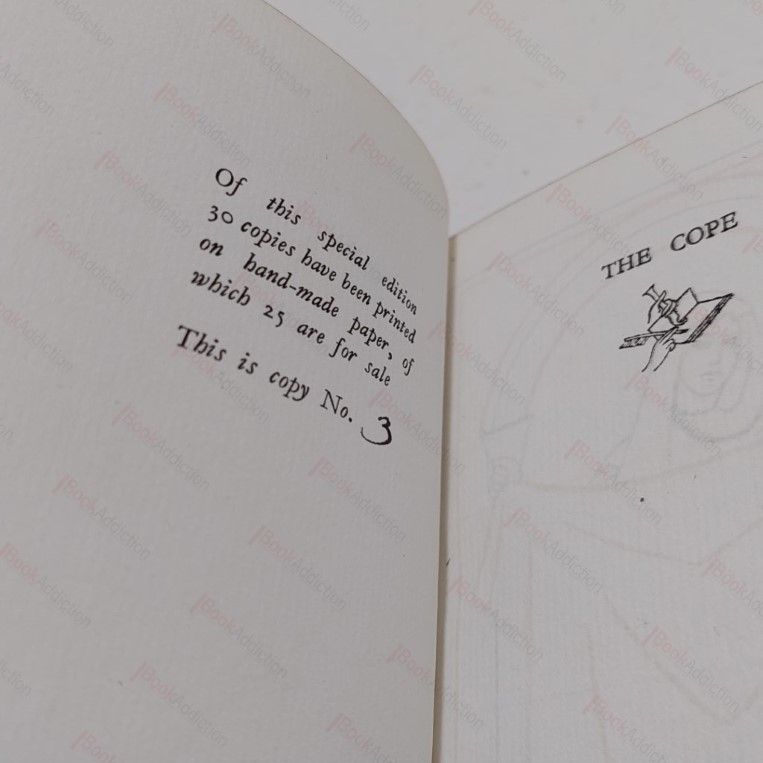 Of this special edition
30 copies have been printed
on hand-made paper, of
which 25 are for sale
This is copy No. 3
THE COPE
BookAddiction